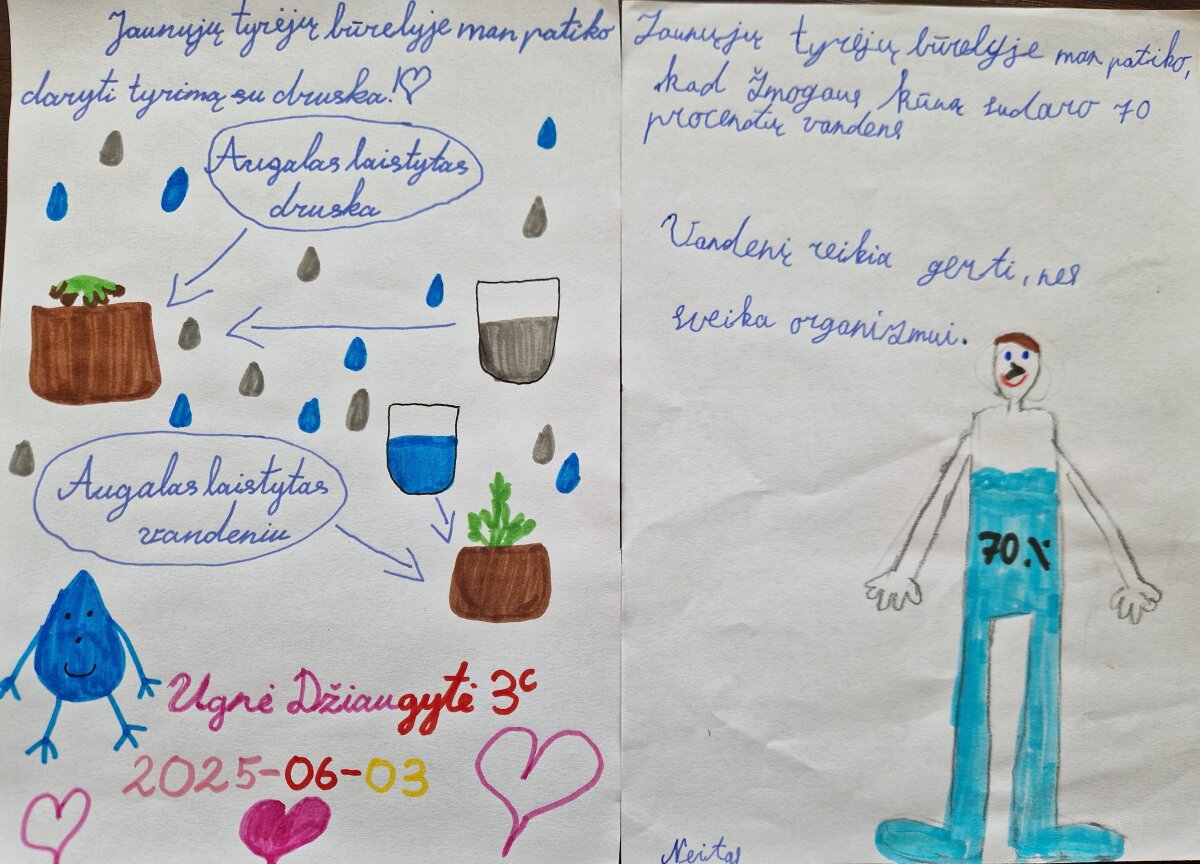 Jaunųjų tyrėjų būrelyje man patiko
daryti tyrimą su druska!
Augalas laistytas
druska
Augalas laistytas
vandeniu
Ugnė Džiaugytė 3c
2025-06-03
Jaunųjų tyrėjų būrelyje man patiko,
kad Žmogaus kūną sudaro 70
procentų vandens
Vandenį reikia gerti, nes
sveika organizmui.
70%
Neitas